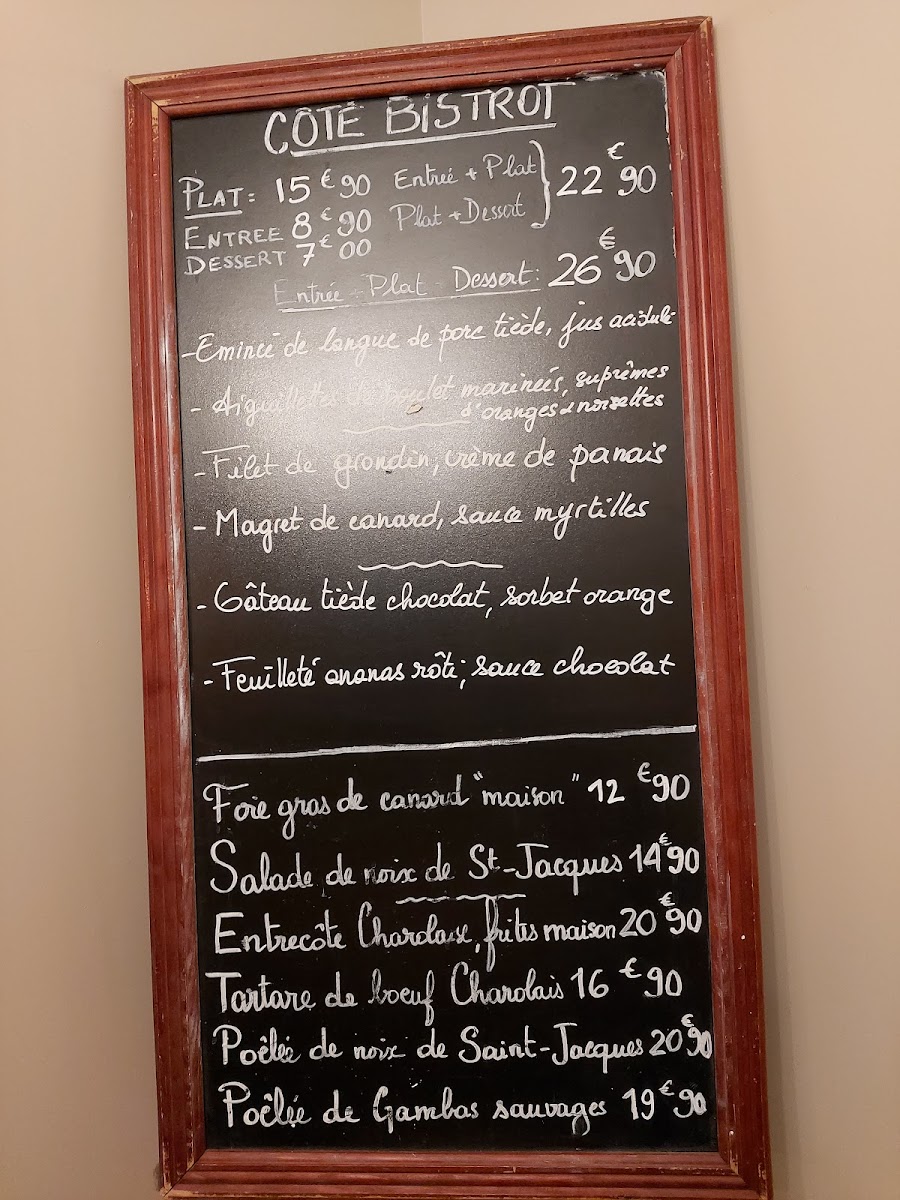 CÔTÉ BISTROT
PLAT = 15 € 90 Entrée + Plat } 22 € 90
ENTREE 8 € 90 Plat + Dessert
DESSERT 7 € 00
Entrée + Plat - Dessert : 26 € 90
- Emincé de langue de porc tiède, jus acidulé
- Aiguillettes de poulet marinées, suprêmes
d'oranges & noisettes
- Filet de grondin, crème de panais
- Magret de canard, sauce myrtilles
- Gâteau tiède chocolat, sorbet orange
- Feuilleté ananas rôti, sauce chocolat
Foie gras de canard "maison" 12 € 90
Salade de noix de St-Jacques 14 € 90
Entrecôte Charolaise, frites maison 20 € 90
Tartare de boeuf Charolais 16 € 90
Poêlée de noix de Saint-Jacques 20 € 90
Poêlée de Gambas sauvages 19 € 90